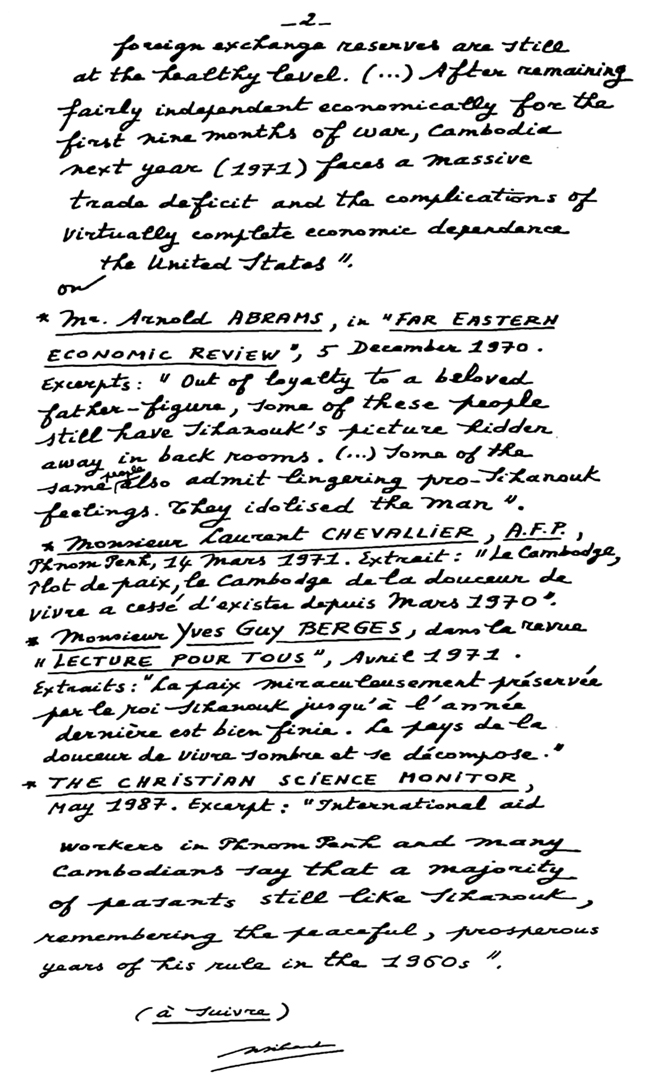 _2_
foreign exchange reserves are still
at the healthy level. (...) After remaining
fairly independent economically for the
first nine months of war, Cambodia
next year (1971) faces a massive
trade deficit and the complications of
virtually complete economic dependence
the United States".
on
* Mr. Arnold ABRAMS, in "FAR EASTERN
ECONOMIC REVIEW", 5 December 1970.
Excerpts: "Out of loyalty to a beloved
father-figure, some of these people
still have Sihanouk's picture hidden
away in back rooms. (...) Some of the
people
same also admit lingering pro-Sihanouk
feelings. They idolised the man".
* Monsieur Laurent CHEVALLIER, A.F.P.,
Phnom Penh, 14 Mars 1971. Extrait: "Le Cambodge,
îlot de paix, le Cambodge de la douceur de
vivre a cessé d'exister depuis Mars 1970".
* Monsieur Yves Guy BERGES, dans la revue
"LECTURE POUR TOUS", Avril 1971.
Extraits: "La paix miraculeusement préservée
par le roi Sihanouk jusqu'à l'année
dernière est bien finie. Le pays de la
douceur de vivre sombre et se décompose."
* THE CHRISTIAN SCIENCE MONITOR,
May 1987. Excerpt: "International aid
workers in Phnom Penh and many
Cambodians say that a majority
of peasants still like Sihanouk,
remembering the peaceful, prosperous
years of his rule in the 1960s".
(à suivre)